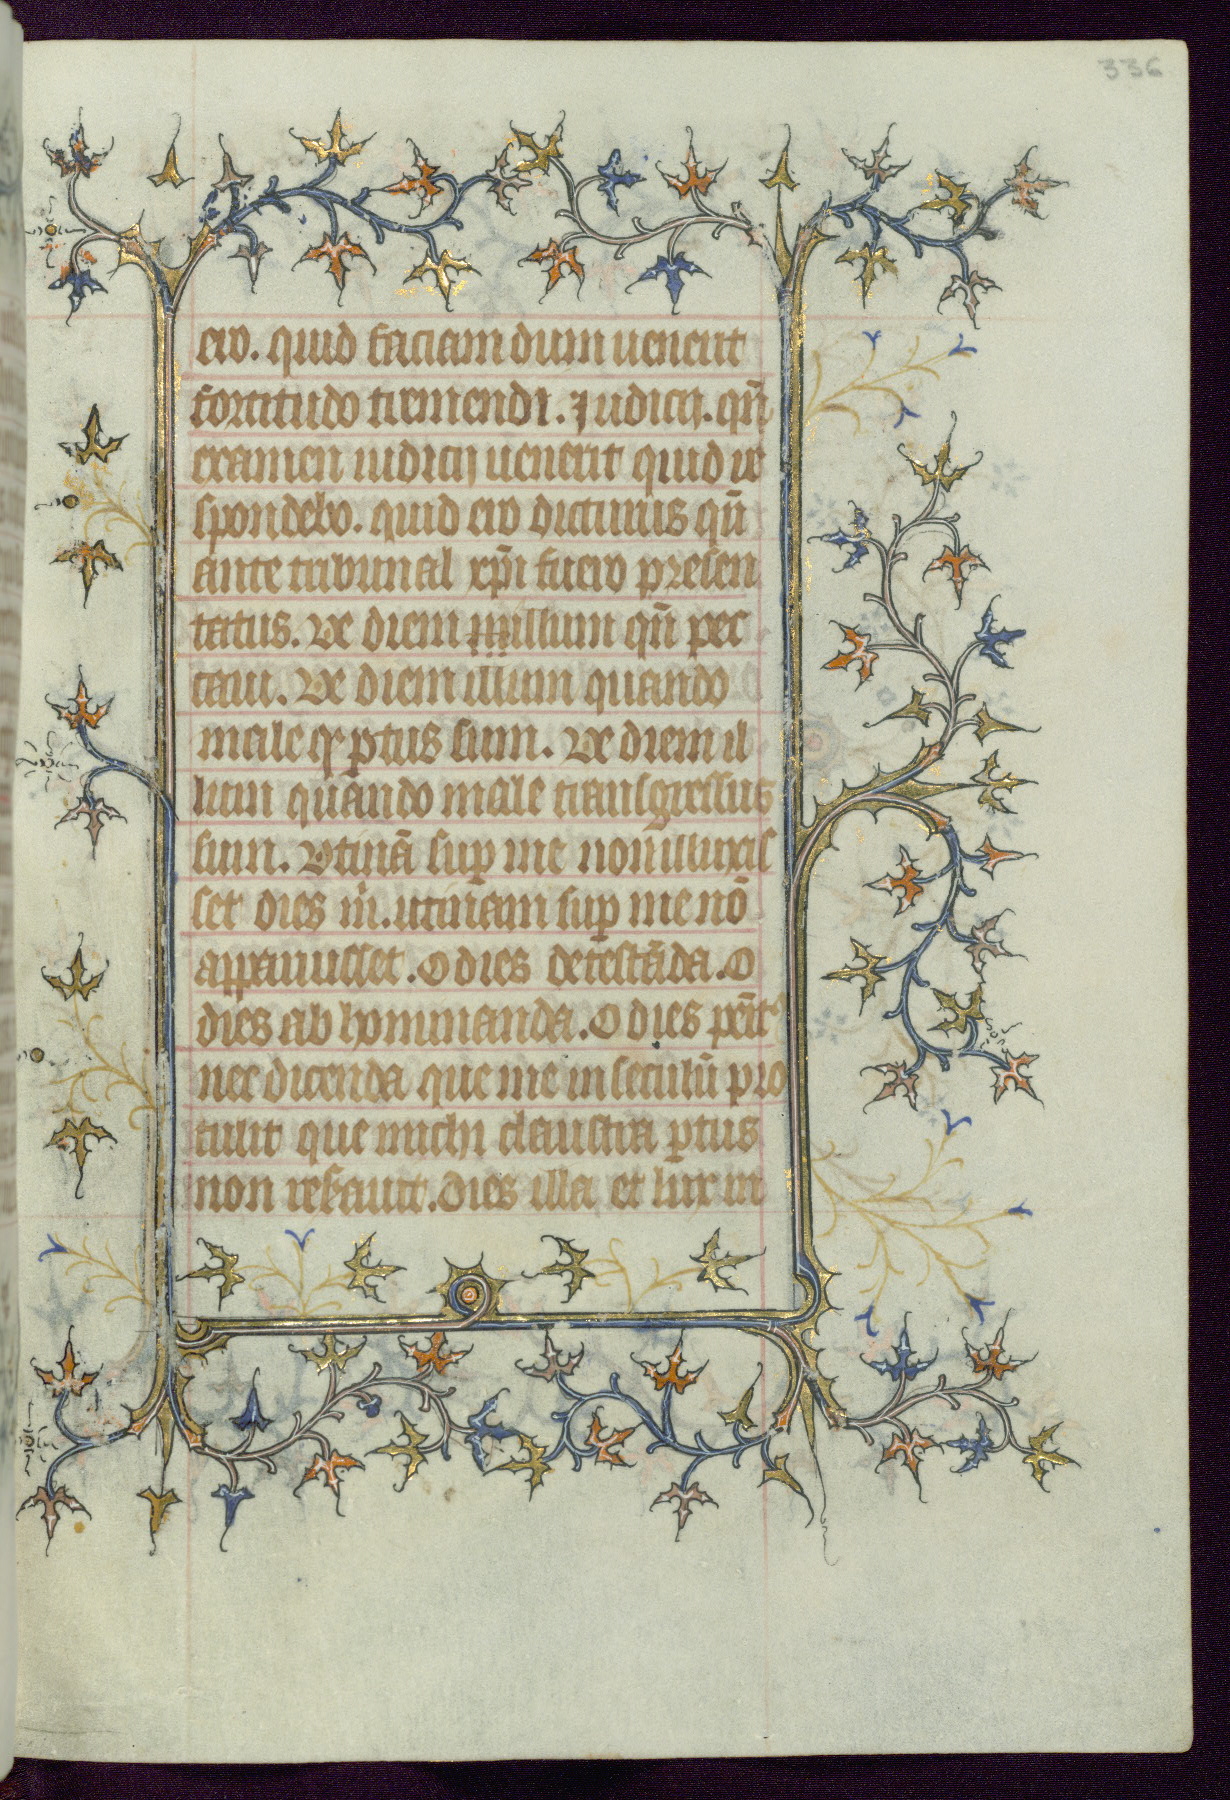 336
ero. quid faciam dum uenerit
fortitudo tremendi. Judicij. qn̄
examen iudicij uenerit quid re
spondebo. quid ero dicturus qn̄
ante tribunal xp̄i fuero presen
tatus. Ve diem illum qn̄ pec
caui. Ve diem illum quando
male ptus sum. Ve diem il
lum quando male transgressus
sum. Vtinā sup me non illuxis
set dies m̄. utinam sup me nō
apparuisset. O dies detestāda. O
dies ab hominanda. O dies penit
nec dicenda que me in seculū pro
tulit que michi claustra ptus
non reserauit. Dies illa et lux in